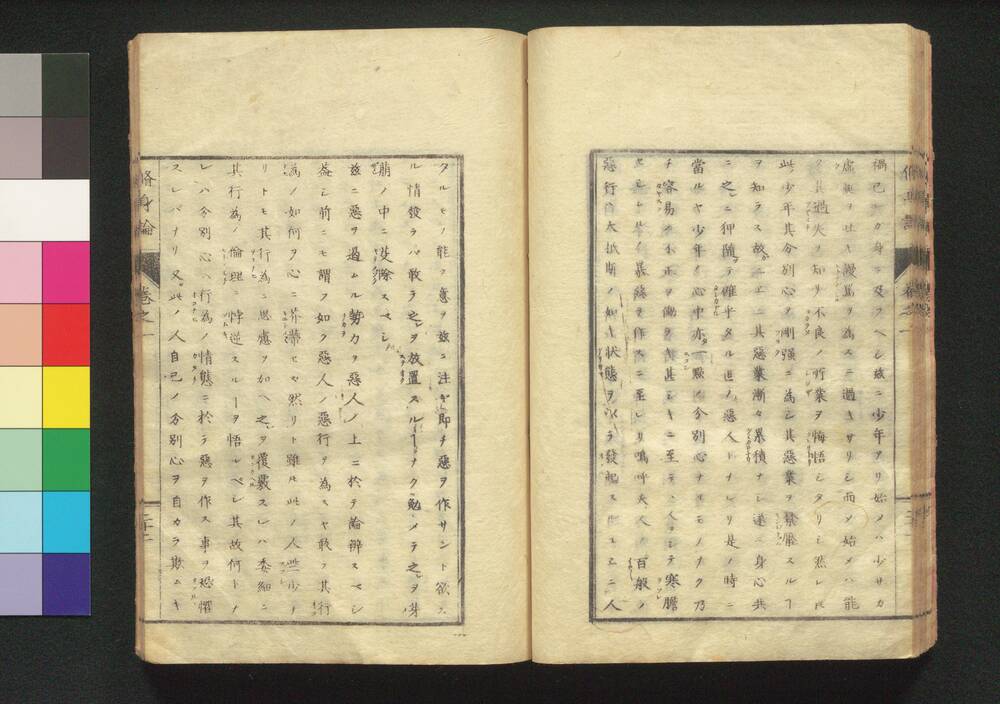 禍己レカ身ニ及フヘシ故ニ少年アリ始メハ少サカ
虚飾ヲ吐キ謾罵ヲ為スニ過キサリシ而メ始メハ能
ク其過失ノ知リ不良ノ所業ヲ悔悟シタリシ然レ𪜈
此少年其分別心ヲ剛強ニ為シ其惡業ヲ禁厭スルヿ
ヲ知ラス故ニ其惡業漸々累積ナシ遂ニ身心共
ニ之ニ狎随テ確乎タル惡人トナレリ是ノ時ニ
當ルヤ少年ノ心中亦一點ノ分別心ナルモノナク乃
チ容易ク不正ヲ働キ甚シキニ至テハ人ヲシテ寒膽
セシムル暴惡ヲ作スニ至レリ嗚呼夫人ノ百般ノ
惡行ハ大抵斯ノ如キ状態ヲ以テ發起スルユエニ人
タルモノ能ク意ヲ茲ニ注キ即チ惡ヲ作サント欲ス
ル情發ラハ敢テ之ヲ放置スルヿナク勉メテ之ヲ芽
萠ノ中ニ芟除スベシ
茲ニ惡ヲ遏ムル勢力ヲ惡人ノ上ニ於テ論辯スベシ
蓋シ前ニモ謂フ如ク惡人ノ惡行ヲ為スヤ敢テ其行
為ノ如何ヲ心ニ介蒂セス然リト雖𪜈此ノ人些少ノ
リトモ其行為ニ思慮ヲ加ヘ之ヲ覆覈スレハ委細ニ
其行為ノ倫理ニ悖逆スルヿヲ悟ルベシ其故何トナ
レハ分別心ハ行為ノ情態ニ於テ惡ヲ作ス事ヲ恐懼
スレバナリ又此ノ人自己ノ分別心ヲ自カラ欺ムキ
脩身論
卷之一